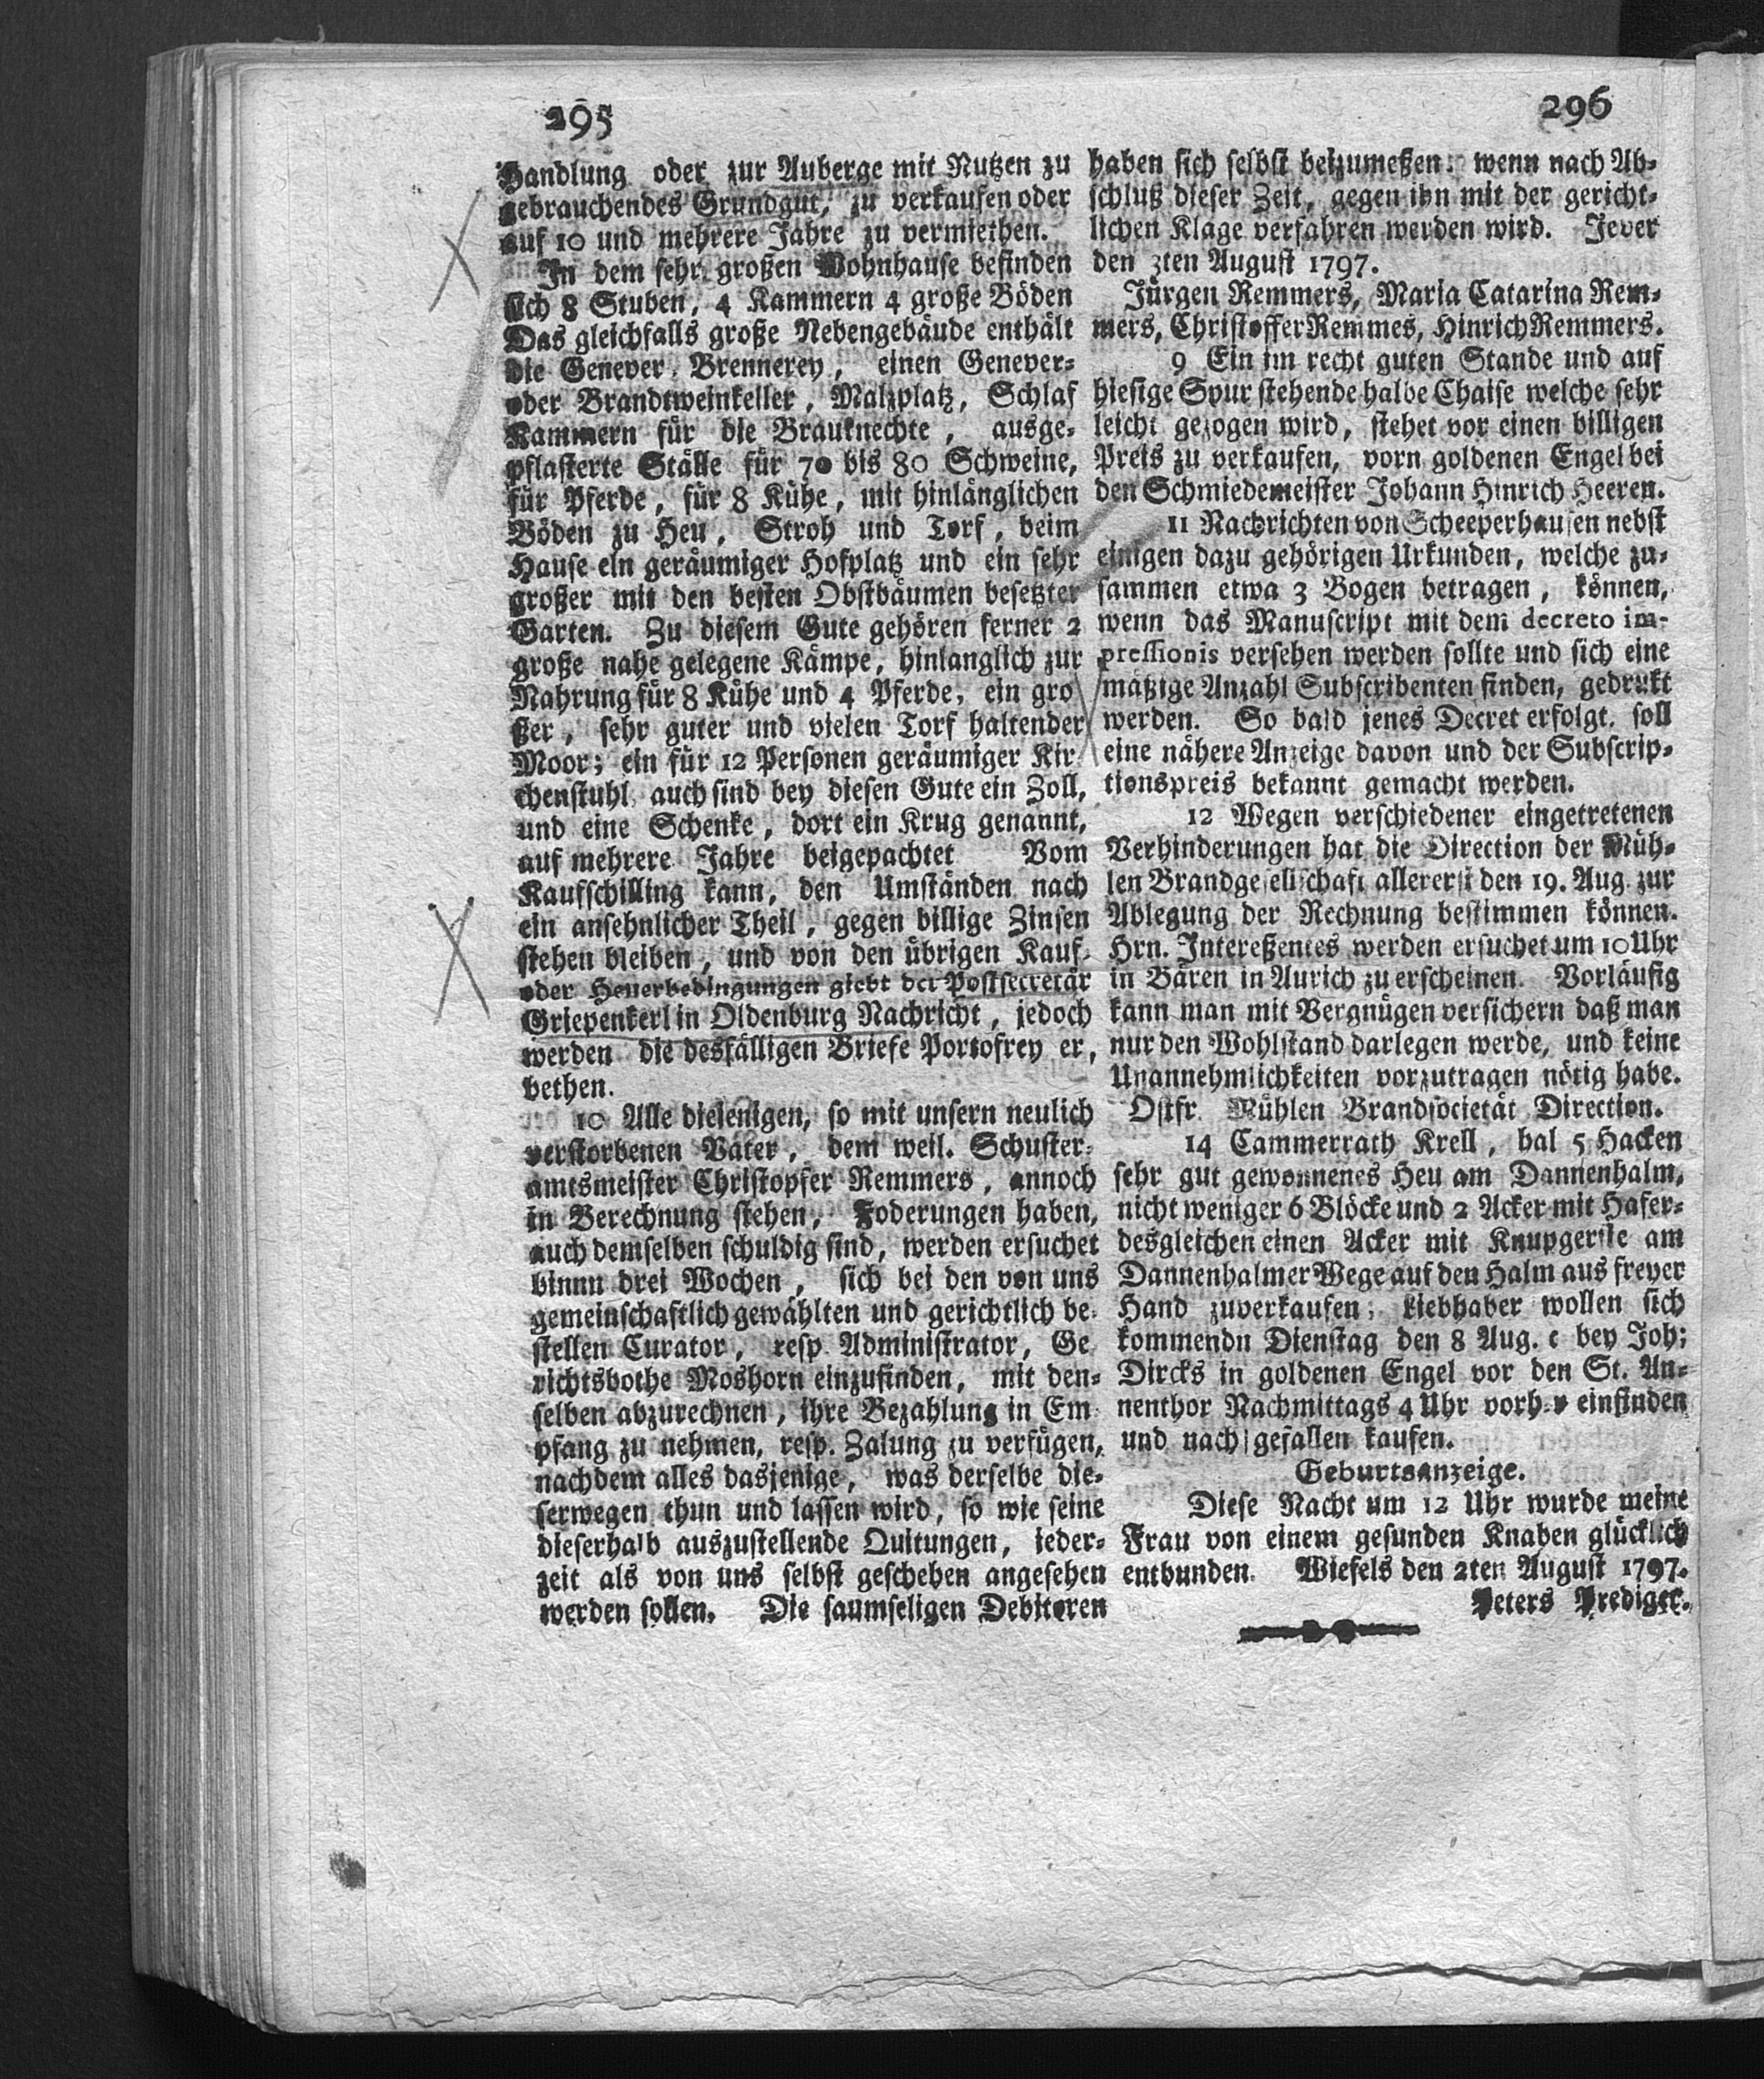 295
Handlung oder zur Auberge mit Nutzen zu
gebrauchendes Grundgut, zu verkaufen oder
auf 10 und mehrere Jahre zu vermiethen.
In dem sehr großen Wohnhause befinden
sich 8 Stuben, 4 Kammern 4 große Böden
Das gleichfalls große Nebengebäude enthält
die Genever, Brennerey, einen Genever-
oder Brandtweinkeller, Malzplatz, Schlaf
Kammern für die Brauknechte, ausge-
pflasterte Ställe für 70 bis 80 Schweine,
für Pferde, für 8 Kühe, mit hinlänglichen
Böden zu Heu, Stroh und Torf, beim
Hause ein geräumiger Hofplatz und ein sehr
großer mit den besten Obstbäumen besetzter
Garten. Zu diesem Gute gehören ferner 2
große nahe gelegene Kämpe, hinlanglich zur
Nahrung für 8 Kühe und 4 Pferde, ein gro
ßer, sehr guter und vielen Torf haltender
Moor; ein für 12 Personen geräumiger Kir
chenstuhl, auch sind bey diesen Gute ein Zoll,
und eine Schenke, dort ein Krug genannt,
auf mehrere Jahre beigepachtet Vom
Kaufschilling kann, den Umständen nach
ein ansehnlicher Theil, gegen billige Zinsen
stehen bleiben, und von den übrigen Kauf-
oder Heuerbedingungen giebt der Postsecretär
Griepenkerl in Oldenburg Nachricht, jedoch
werden die desfälligen Briefe Portofrey er,
bethen.
10 Alle diejenigen, so mit unsern neulich
verstorbenen Vater, dem weil. Schuster-
amtsmeister Christopfer Remmers, annoch
in Berechnung stehen, Foderungen haben,
auch demselben schuldig sind, werden ersuchet
binnn drei Wochen, sich bei den von uns
gemeinschaftlich gewählten und gerichtlich be-
stellen Curator, resp. Administrator, Ge
richtsbothe Moshorn einzufinden, mit den-
selben abzurechnen, ihre Bezahlung in Em
pfang zu nehmen, resp. Zalung zu verfügen,
nachdem alles dasjenige, was derselbe die-
serwegen thun und lassen wird, so wie seine
dieserhalb auszustellende Quitungen, ieder-
zeit als von uns selbst geschehen angesehen
werden sollen. Die saumseligen Debitoren
296
haben sich selbst beizumeßen: wenn nach Ab-
schluß dieser Zeit, gegen ihn mit der gericht-
lichen Klage verfahren werden wird. Jever
den 3ten August 1797.
Jürgen Remmers, Maria Catarina Rem-
mers, Christoffer Remmes, Hinrich Remmers.
9 Ein im recht guten Stande und auf
hiesige Spur stehende halbe Chaise welche sehr
leicht gezogen wird, stehet vor einen billigen
Preis zu verkaufen, vorn goldenen Engel bei
den Schmiedemeister Johann Hinrich Heeren.
11 Nachrichten von Scheeperhausen nebst
einigen dazu gehörigen Urkunden, welche zu-
sammen etwa 3 Bogen betragen, können,
wenn das Manuscript mit dem decreto im-
pressionis versehen werden sollte und sich eine
mäßige Anzahl Subscribenten finden, gedrukt
werden. So bald jenes Decret erfolgt, soll
eine nähere Anzeige davon und der Subscrip-
tionspreis bekannt gemacht werden.
12 Wegen verschiedener eingetretenen
Verhinderungen hat die Direction der Müh-
len Brandgesellschaft allererst den 19. Aug. zur
Ablegung der Rechnung bestimmen können.
Hrn. Intereßentes werden ersuchet um 10 Uhr
in Bären in Aurich zu erscheinen. Vorläufig
kann man mit Vergnügen versichern daß man
nur den Wohlstand darlegen werde, und keine
Unannehmlichkeiten vorzutragen nötig habe.
Ostfr. Mühlen Brandsocietät Direction.
14 Cammerrath Krell, hal 5 Hacken
sehr gut gewonnenes Heu am Dannenhalm,
nicht weniger 6 Blöcke und 2 Acker mit Hafer-
desgleichen einen Acker mit Knupgerste am
Dannenhalmer Wege auf den Halm aus freyer
Hand zuverkaufen; Liebhaber wollen sich
kommendn Dienstag den 8 Aug. c bey Joh:
Dircks in goldenen Engel vor den St. An-
nenthor Nachmittags 4 Uhr einfinden
und nach gefallen kaufen.
Geburtsanzeige.
Diese Nacht um 12 Uhr wurde meine
Frau von einem gesunden Knaben glücklich
entbunden. Wiefels den 2ten August 1797.
Peters Prediger.